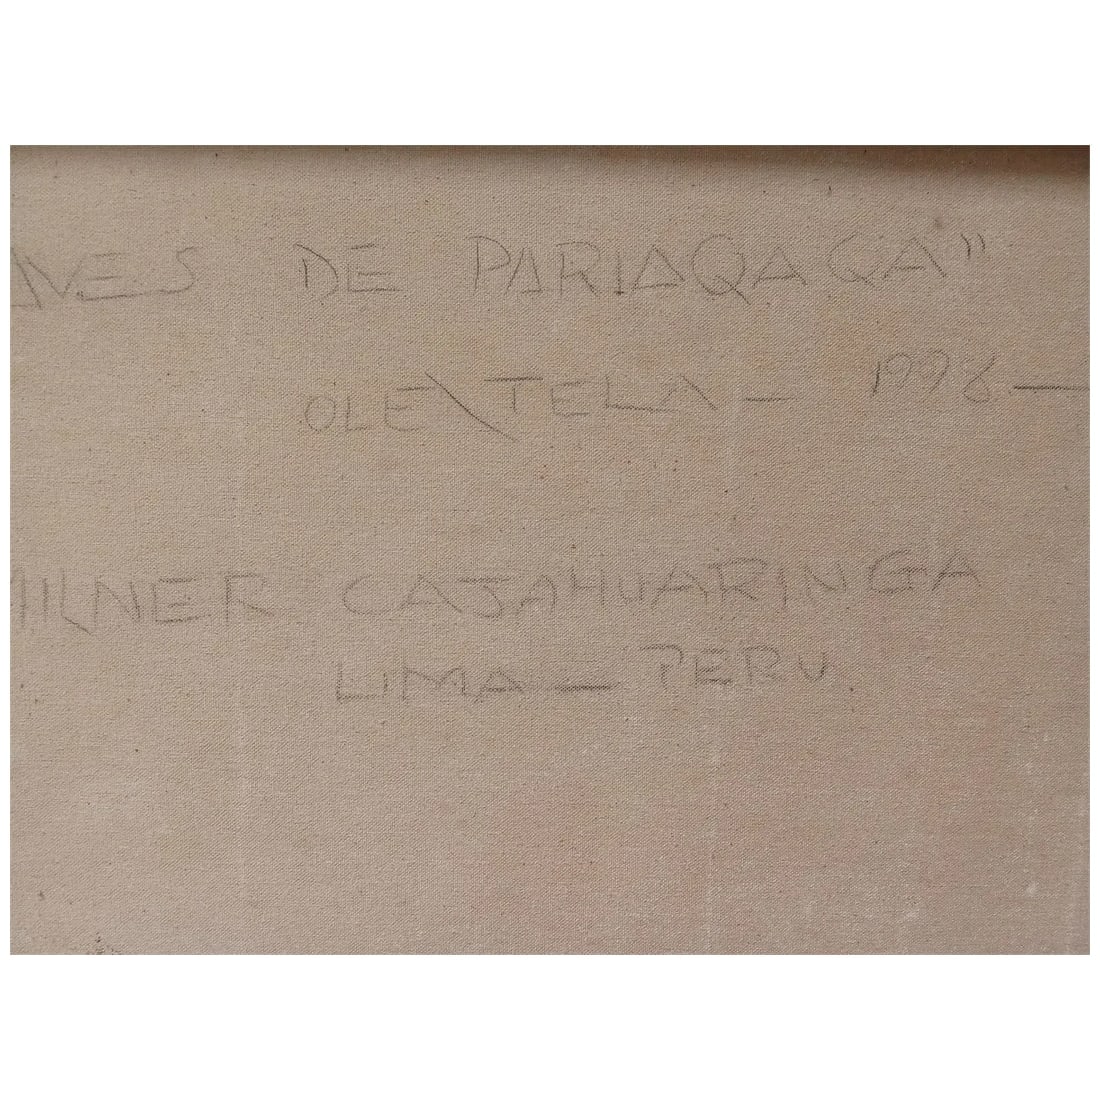 AVES DE PARIAQAQA"
OLEO\TELA — 1998 —
MILNER CAJAHUARINGA
LIMA — PERU